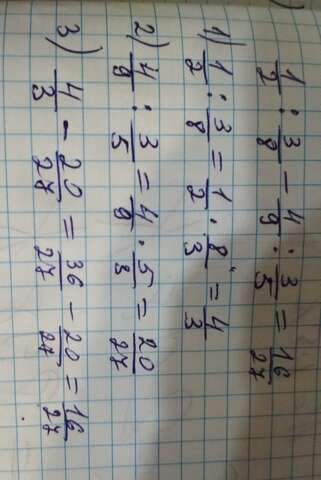 1/2 : 3/8 - 4/9 : 3/5 = 16/27
1) 1/2 : 3/8 = 1/2 · 8/3 = 4/3
2) 4/9 : 3/5 = 4/9 · 5/3 = 20/27
3) 4/3 - 20/27 = 36/27 - 20/27 = 16/27